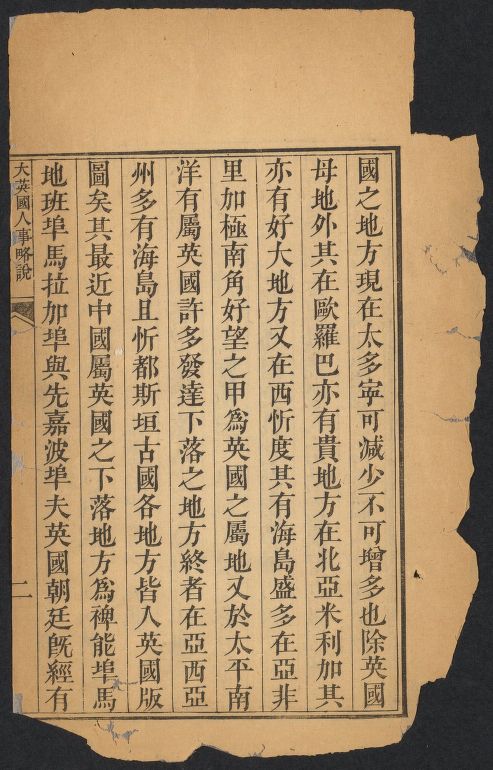 國之地方現在太多寜可減少不可增多也除英國
母地外其在歐羅巴亦有貴地方在北亞米利加其
亦有好大地方又在西忻度其有海島盛多在亞非
里加極南角好望之甲爲英國之屬地又於太平南
洋有屬英國許多發達下落之地方終者在亞西亞
州多有海島且忻都斯垣古國各地方皆入英國版
圖矣其最近中國屬英國之下落地方爲裨能埠馬
地班埠馬拉加埠與先嘉波埠夫英國朝廷旣經有
大英國人事略說
二